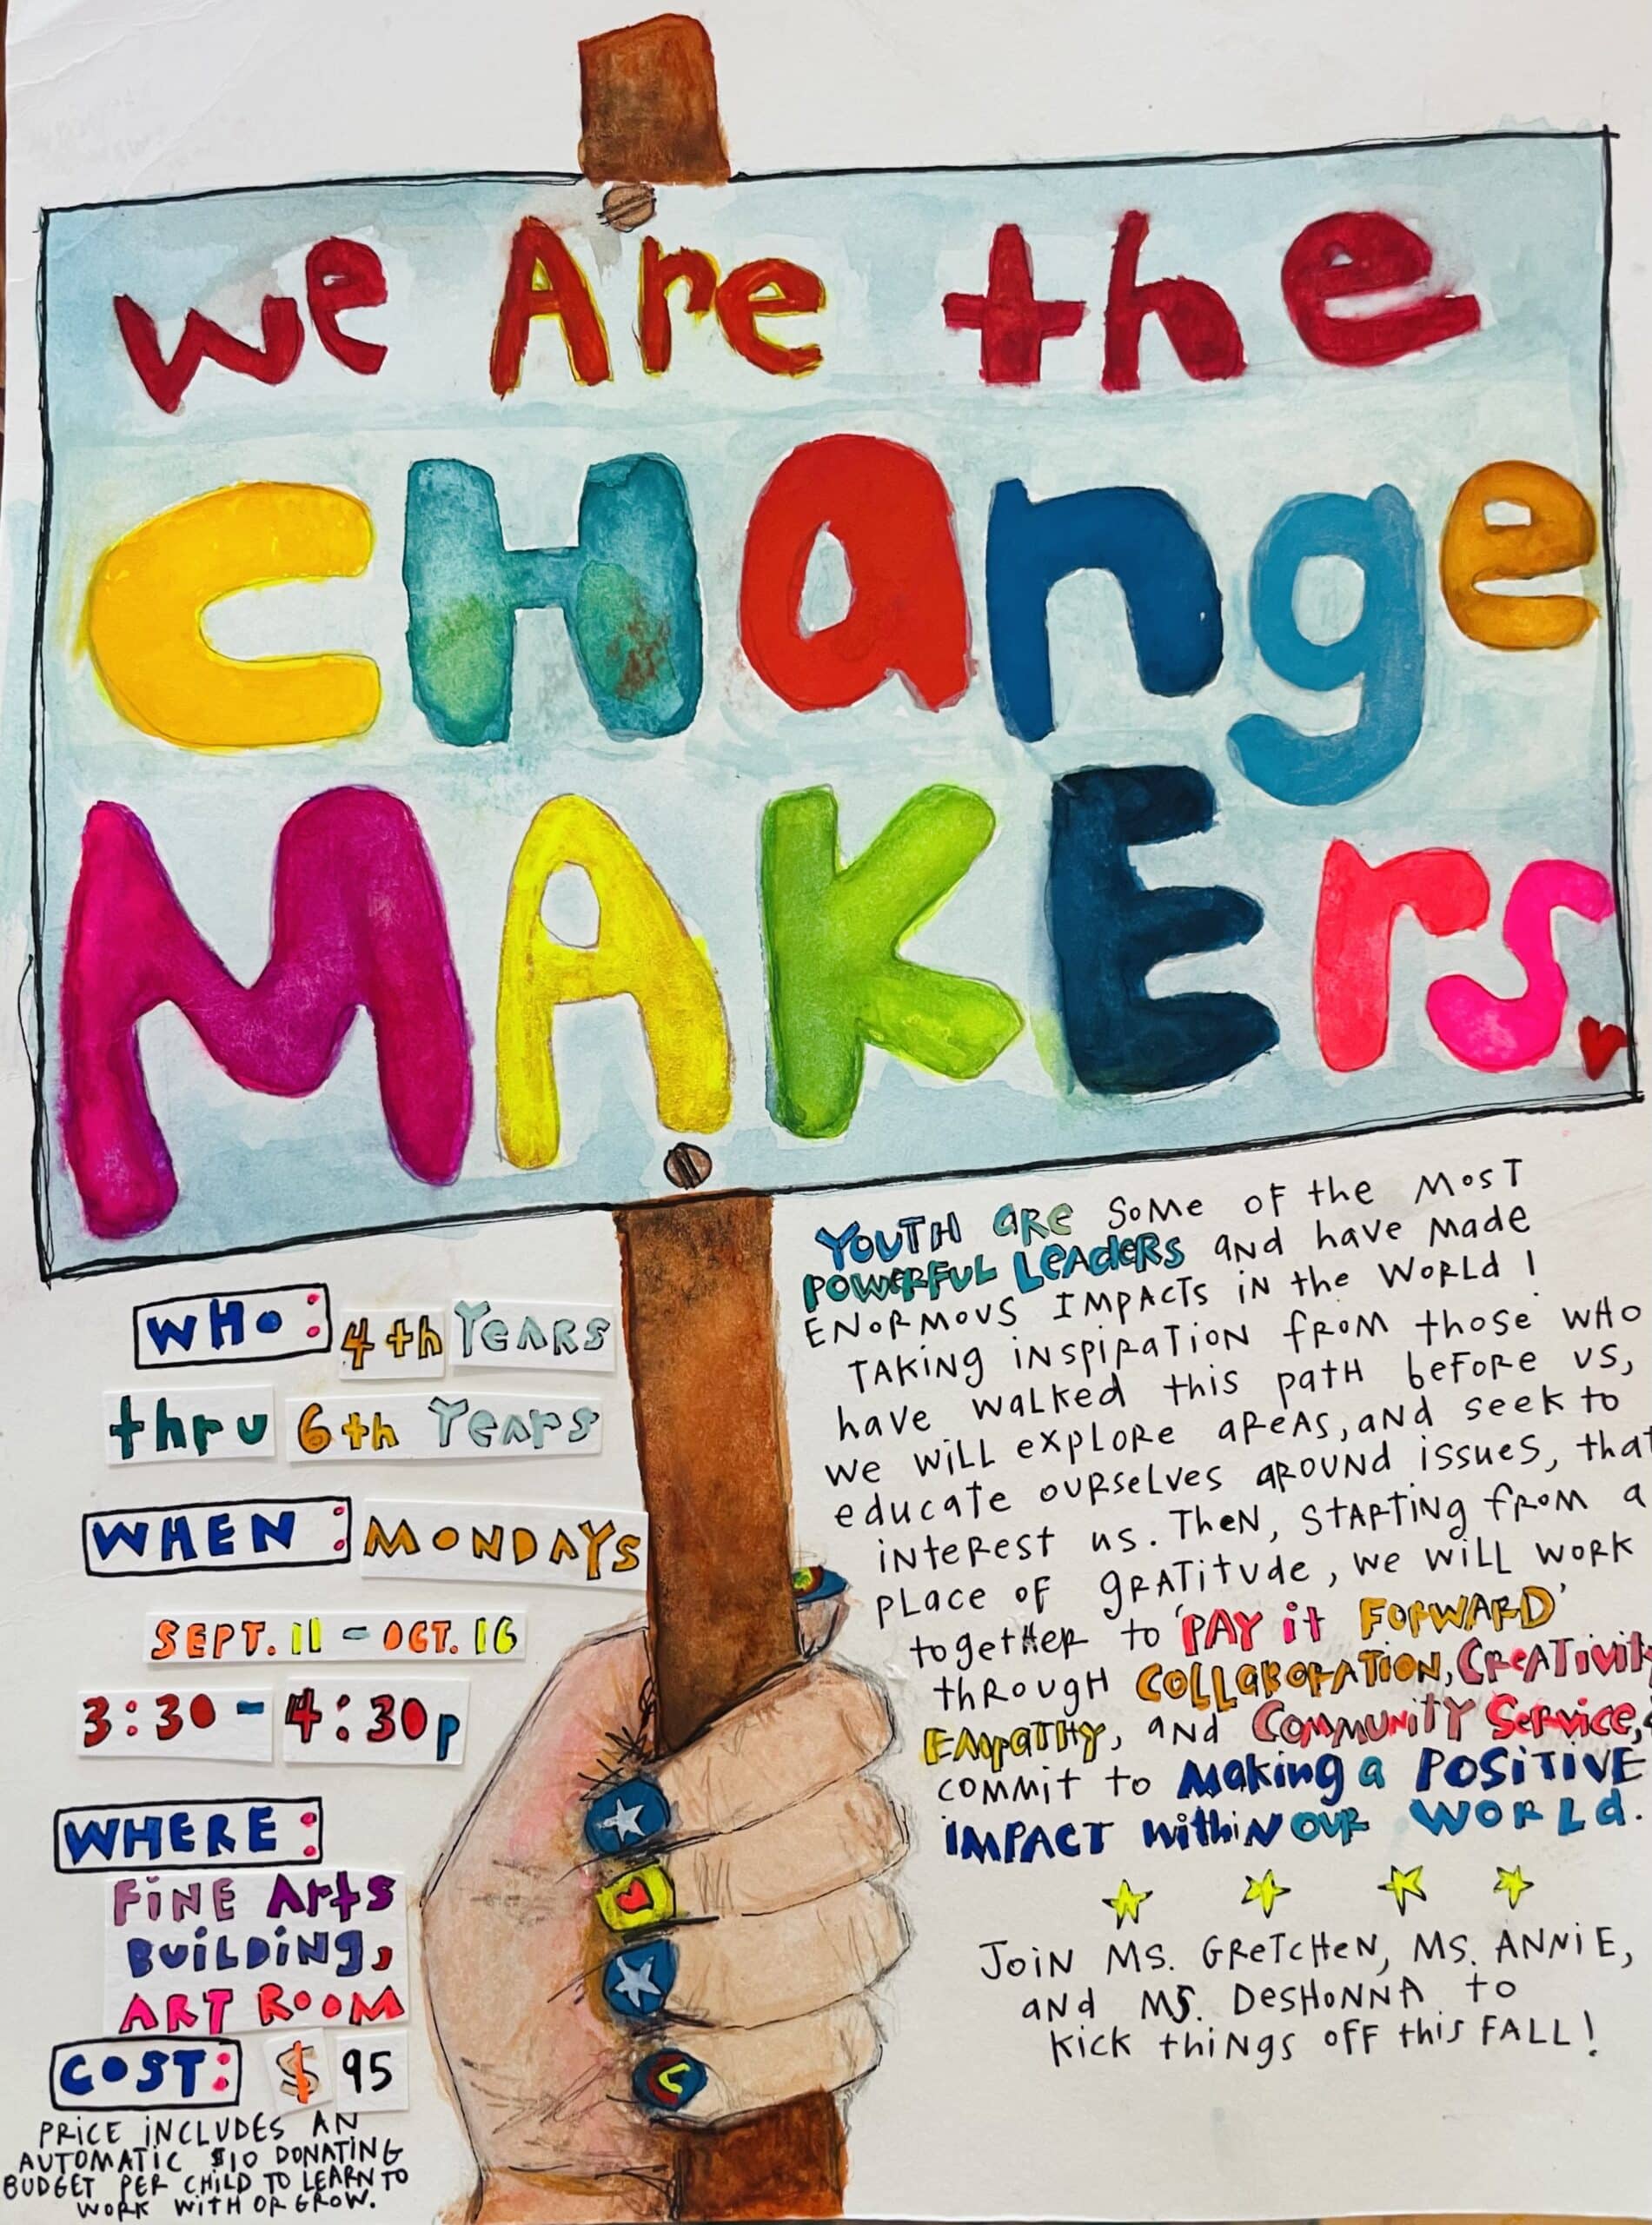 we Are the
CHAnge
MAKErs
YOUTH are some of the most
POWERFUL LEADERS and have made
ENORMOUS IMPACTS in the WORLD!
TAKING inspiration from those who
have walked this path before us,
we will explore areas, and seek to
educate ourselves around issues, that
interest us. Then, starting from a
place of gratitude, we will work
together to 'PAY it FORWARD'
through COLLABORATION, CREATIVITY
EMPATHY, and COMMUNITY SERVICE,
commit to Making a POSITIVE
IMPACT within our WORLD.
Join Ms. Gretchen, Ms. Annie,
and Ms. Deshonna to
kick things off this FALL!
WHO: 4th Years
thru 6th Years
WHEN: MONDAYS
SEPT. 11 - OCT. 16
3:30 - 4:30p
WHERE:
FINE Arts
BUILDING,
ART ROOM
COST: $95
PRICE INCLUDES AN
AUTOMATIC $10 DONATING
BUDGET PER CHILD TO LEARN TO
WORK WITH OR GROW.